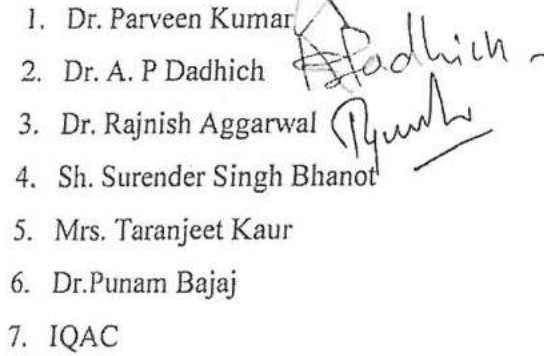 1. Dr. Parveen Kumar
2. Dr. A. P Dadhich Dadhich
3. Dr. Rajnish Aggarwal
4. Sh. Surender Singh Bhanot
5. Mrs. Taranjeet Kaur
6. Dr.Punam Bajaj
7. IQAC